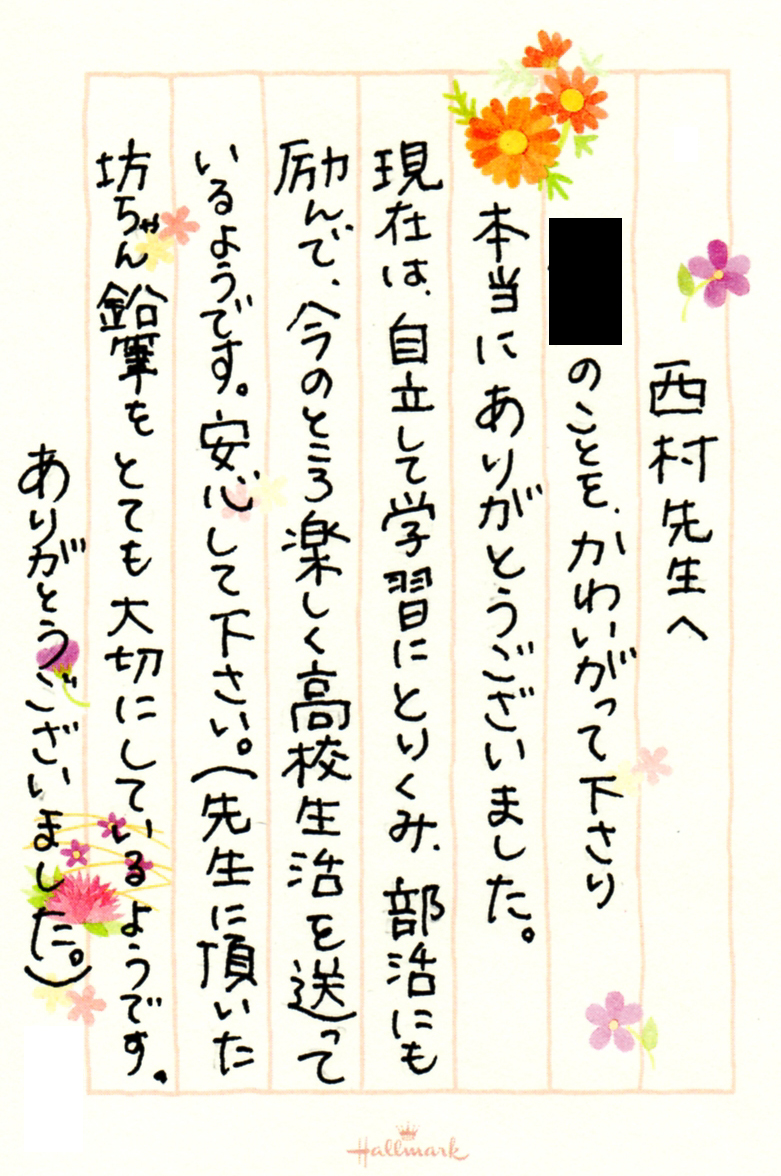 西村先生へ
のことを、かわいがって下さり
本当にありがとうございました。
現在は、自立して学習にとりくみ、部活にも
励んで、今のところ楽しく高校生活を送って
いるようです。安心して下さい。(先生に頂いた
坊ちゃん鉛筆をとても大切にしているようです。
ありがとうございました。)
Hallmark